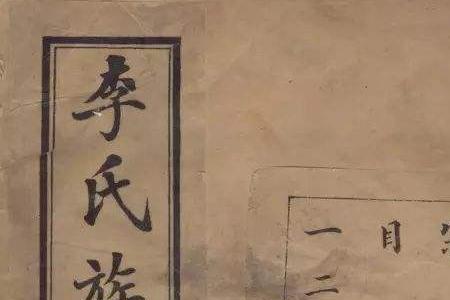 李氏族
目
一
二